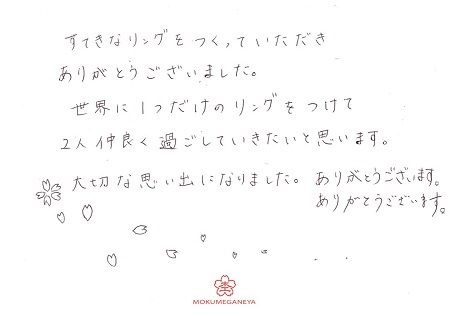 すてきなリングをつくっていただき
ありがとうございました。
世界に1つだけのリングをつけて
2人仲良く過ごしていきたいと思います。
大切な思い出になりました。ありがとうございます。
ありがとうございます。
MOKUMEGANEYA